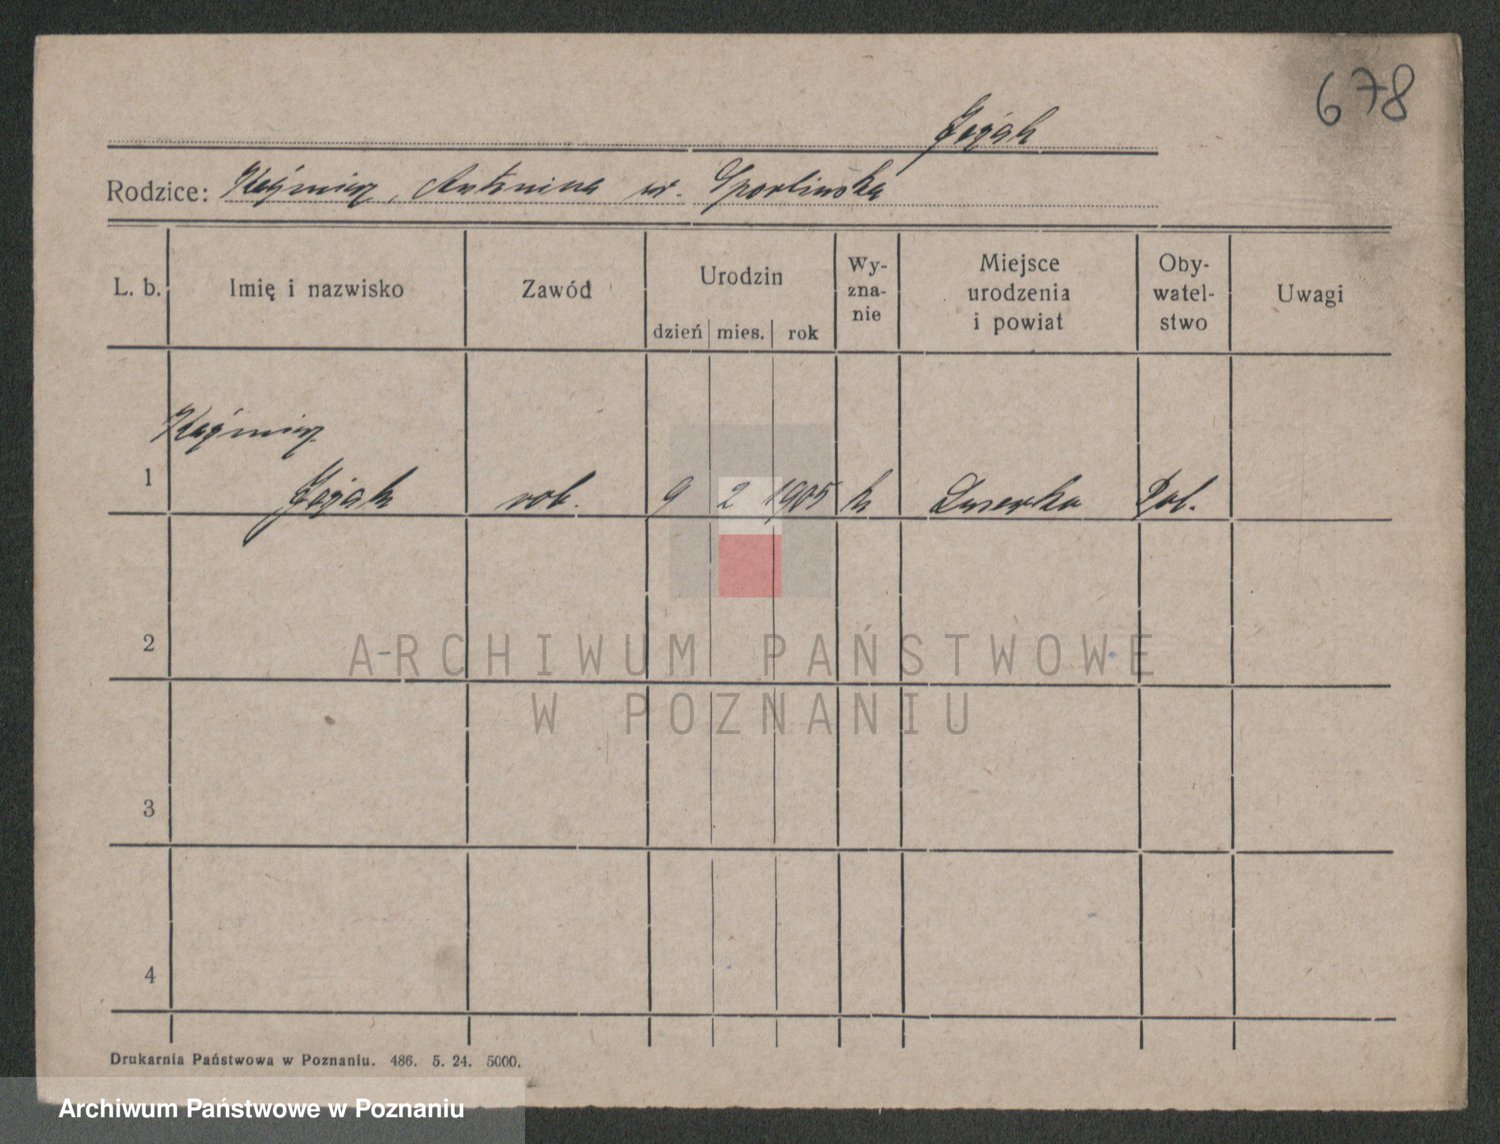 678
Jezak
Rodzice: Kaźmierz, Antonina ur. Sporlińska
L. b. Imię i nazwisko Zawód Urodzin dzień mies. rok Wy-zna-nie Miejsce urodzenia i powiat Oby-watel-stwo Uwagi
Kaźmierz
1 Jezak rob. 9 2 1905 k Pol.
2
ARCHIWUM PAŃSTWOWE
W POZNANIU
3
4
Drukarnia Państwowa w Poznaniu. 486. 5. 24. 5000.
Archiwum Państwowe w Poznaniu